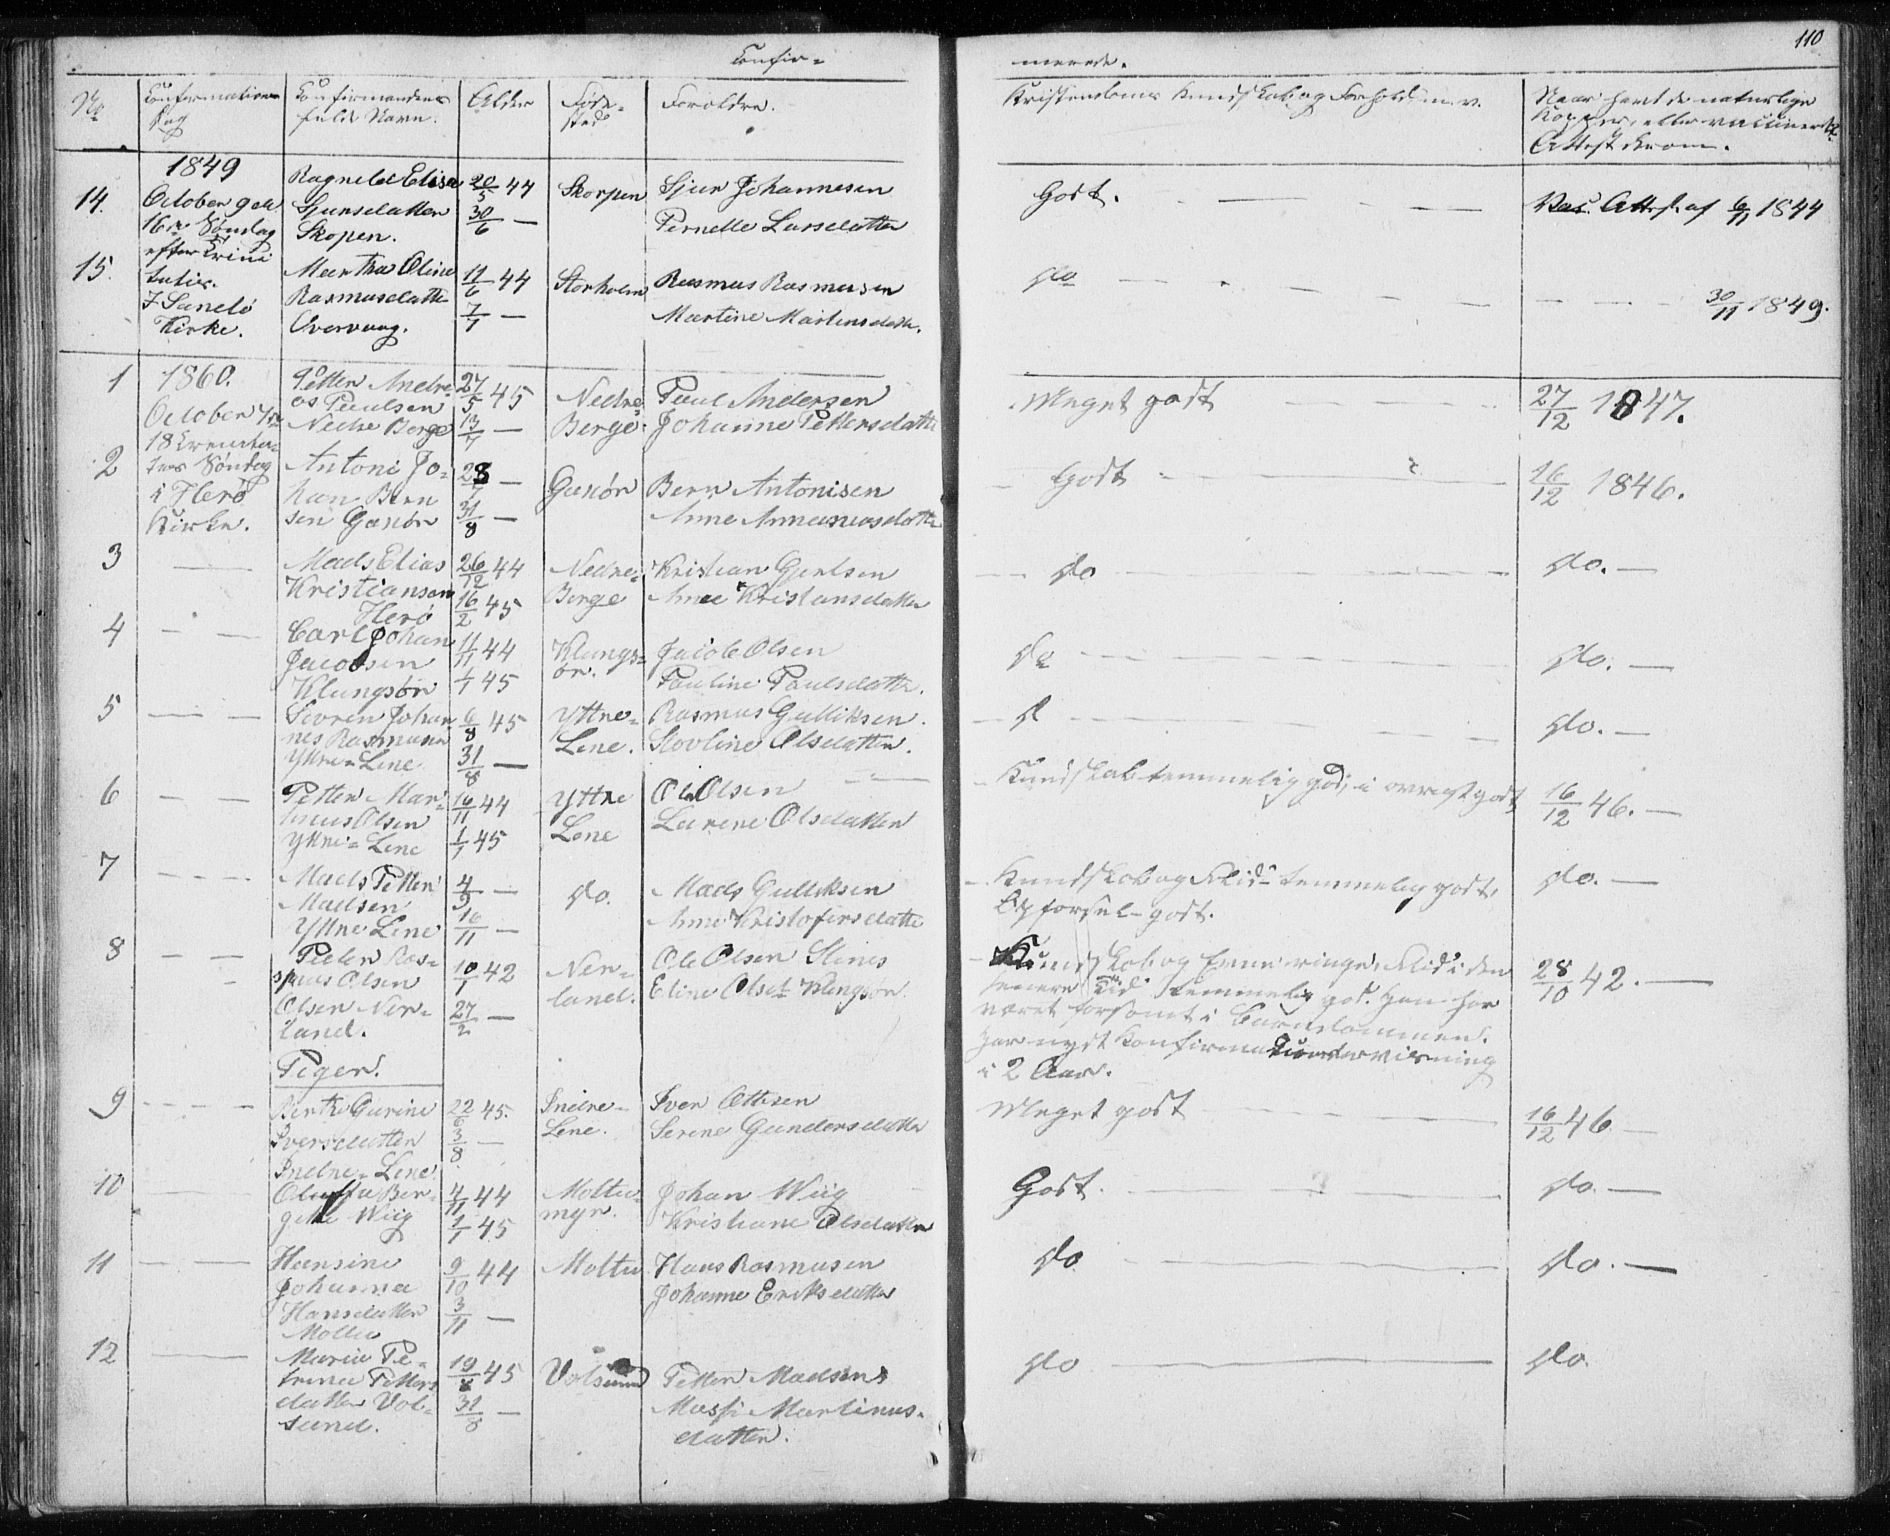 110
Confir= merede.
No Confirmations Dag Confirmandens fulde Navn. Alder Føde= sted Foreldre. Kristendoms Kundskab og Forhold m. v. Naar havt de naturlige Kopper, eller vaccineret
Attest derom.
1849
14. October 9de 16de Søndag efter Trini tatis. I Sandø Kirke.
Ragnele Elisa Sjursdatter Skopen. 20/5 44 30/6 — Skorpen Sjur Johannesen Pernelle Larsdatter Godt. Vac. Attest af 6/11 1844
15. Martha Oline Rasmusdatte Overvaag. 11/6 44 7/7 — Storholm Rasmus Rasmusen Martine Martinsdatte. do 30/11 1849.
1860.
October 7de 18 Trinita= tis Søndag i Herø Kirke.
1 Petter Andre= as Paulsen Nedre Berge 27/5 45 13/7 — Nedre= Berge. Paul Andersen Johanne Pettersdatte Meget godt 27/12 1847.
2 Antoni Jo= han Bern sen Gaxør 28/7 — 31/8 — Gaxør Bern Antonisen Anne Ananiasdatte Godt 16/12 1846.
3 Mads Elias Kristiansen Herø 26/12 44 16/2 45 Nedre= Berge Kristian Gjertsen Anne Kristiansdatter do do. —
4 Carl Johan Jacobsen Klungsør 11/11 44 1/1 45 Klungs= ør. Jacob Olsen Pauline Paulsdatte. do do. —
5 Sevren Johan nes Rasmusen Yttre= Lene. 6/8 45 31/8 — Yttre= Lene. Rasmus Gulliksen. Olsdatter. d do. —
6 Petter Mar= inus Olsen Yttre= Lene 16/11 44 1/1 45 Yttre Lene Ole Olsen Larene Olsdatter Kundskab temmelig god, i øvrigt godt 16/12 46. —
7 Mads Petter Madsen Yttre Lene 4/9 — 16/11 — do. Mads Gulliksen Anne Kristofersdatte Kundskab og Flid temmelig godt, Opførsel godt. do. —
8 Peder Ras= mus Olsen Olsen Ner= land. 10/1 42 27/2 — Ner= land. Ole Olsen Eline Olsdt. Klungsør Kundskab og Evne ringe. Flid i den senere Tid temmelig god. Han har været forsømt i Barndommen. Har nydt Konfirmationsundervisning i 2 Aar. 28/10 42. —
Piger.
9 Berthe Gurine Iversdatter Indre= Lene. 22/6 45. 3/8 — Indre= Lene. Iver Ottesen Serine Gundersdatte Meget godt 16/12 46 —
10 Oluffa Ber= gitte Wiig 4/11 44 1/1 45 Moltu= myr. Johan Wiig Kristiane Olsdatter Godt. do —
11 Hansine Johanna Hansdatter Moltu 9/10 44 3/11 — Moltu Hans Rasmusen Johanne Eriksdatte do do. —
12 Maria Pe= trina Petters datter Vol= sund. 19/6 45 31/8 — Volsund Petter Madsen Massi Martinus= datter. do do.